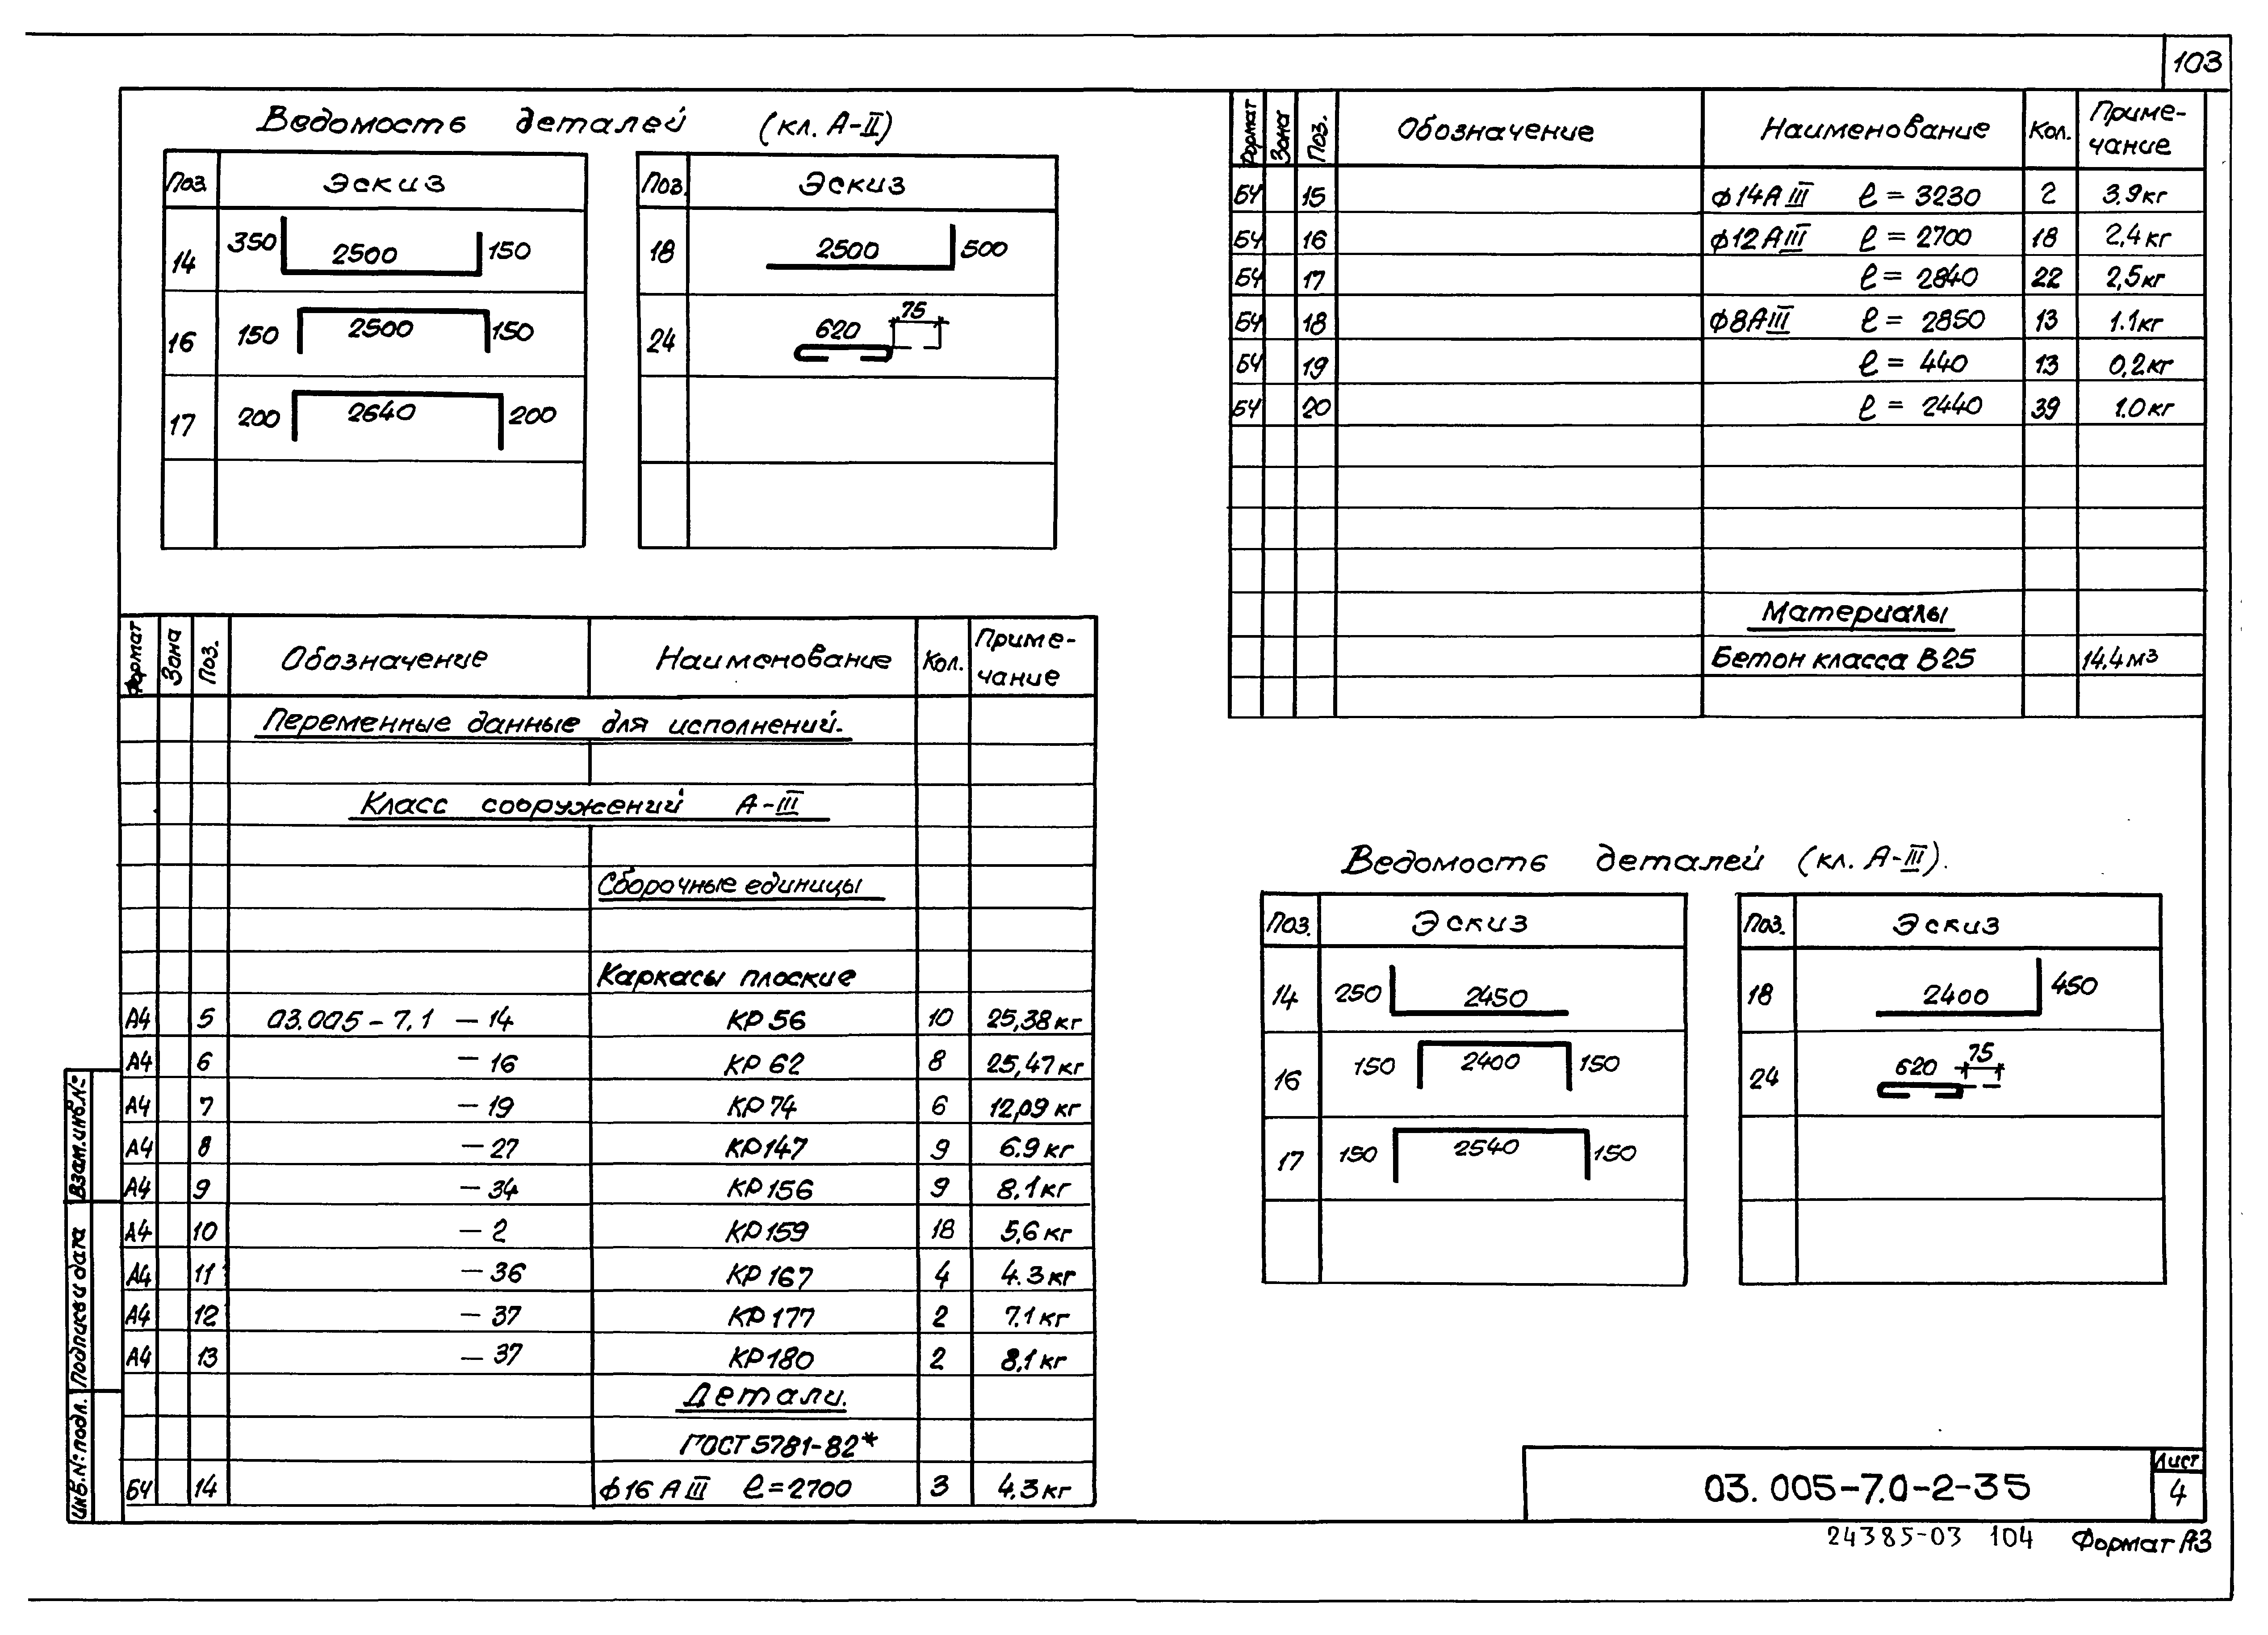 103
Ведомость деталей (кл. А-II)
Поз. Эскиз
14 350 2500 150
16 150 2500 150
17 200 2640 200
Поз. Эскиз
18 2500 500
24 620 75
Формат Зона Поз. Обозначение Наименование Кол. Приме-
чание
Переменные данные для исполнений.
Класс сооружений А-III
Сборочные единицы
Каркасы плоские
А4 5 03.005-7.1 -14 КР56 10 25,38кг
А4 6 -16 КР62 8 25,47кг
А4 7 -19 КР74 6 12,09кг
А4 8 -27 КР147 9 6.9кг
А4 9 -34 КР156 9 8.1кг
А4 10 -2 КР159 18 5,6кг
А4 11 -36 КР167 4 4.3кг
А4 12 -37 КР177 2 7.1кг
А4 13 -37 КР180 2 8,1кг
Детали.
ГОСТ5781-82*
БЧ 14 ф16АIII ℓ=2700 3 4,3кг
Формат Зона Поз. Обозначение Наименование Кол. Приме-
чание
БЧ 15 ф14АIII ℓ=3230 2 3,9кг
БЧ 16 ф12АIII ℓ=2700 18 2,4кг
БЧ 17 ℓ=2840 22 2,5кг
БЧ 18 ф8АIII ℓ=2850 13 1.1кг
БЧ 19 ℓ=440 13 0,2кг
БЧ 20 ℓ=2440 39 1.0кг
Материалы
Бетон класса В25 14.4м³
Ведомость деталей (кл. А-III).
Поз. Эскиз
14 250 2450
16 150 2400 150
17 150 2540 150
Поз. Эскиз
18 2400 450
24 620 75
Взам.инв.№
Подпись и дата
Инв.№ подл.
03.005-7.0-2-35
Лист
4
24385-03 104 Формат А3